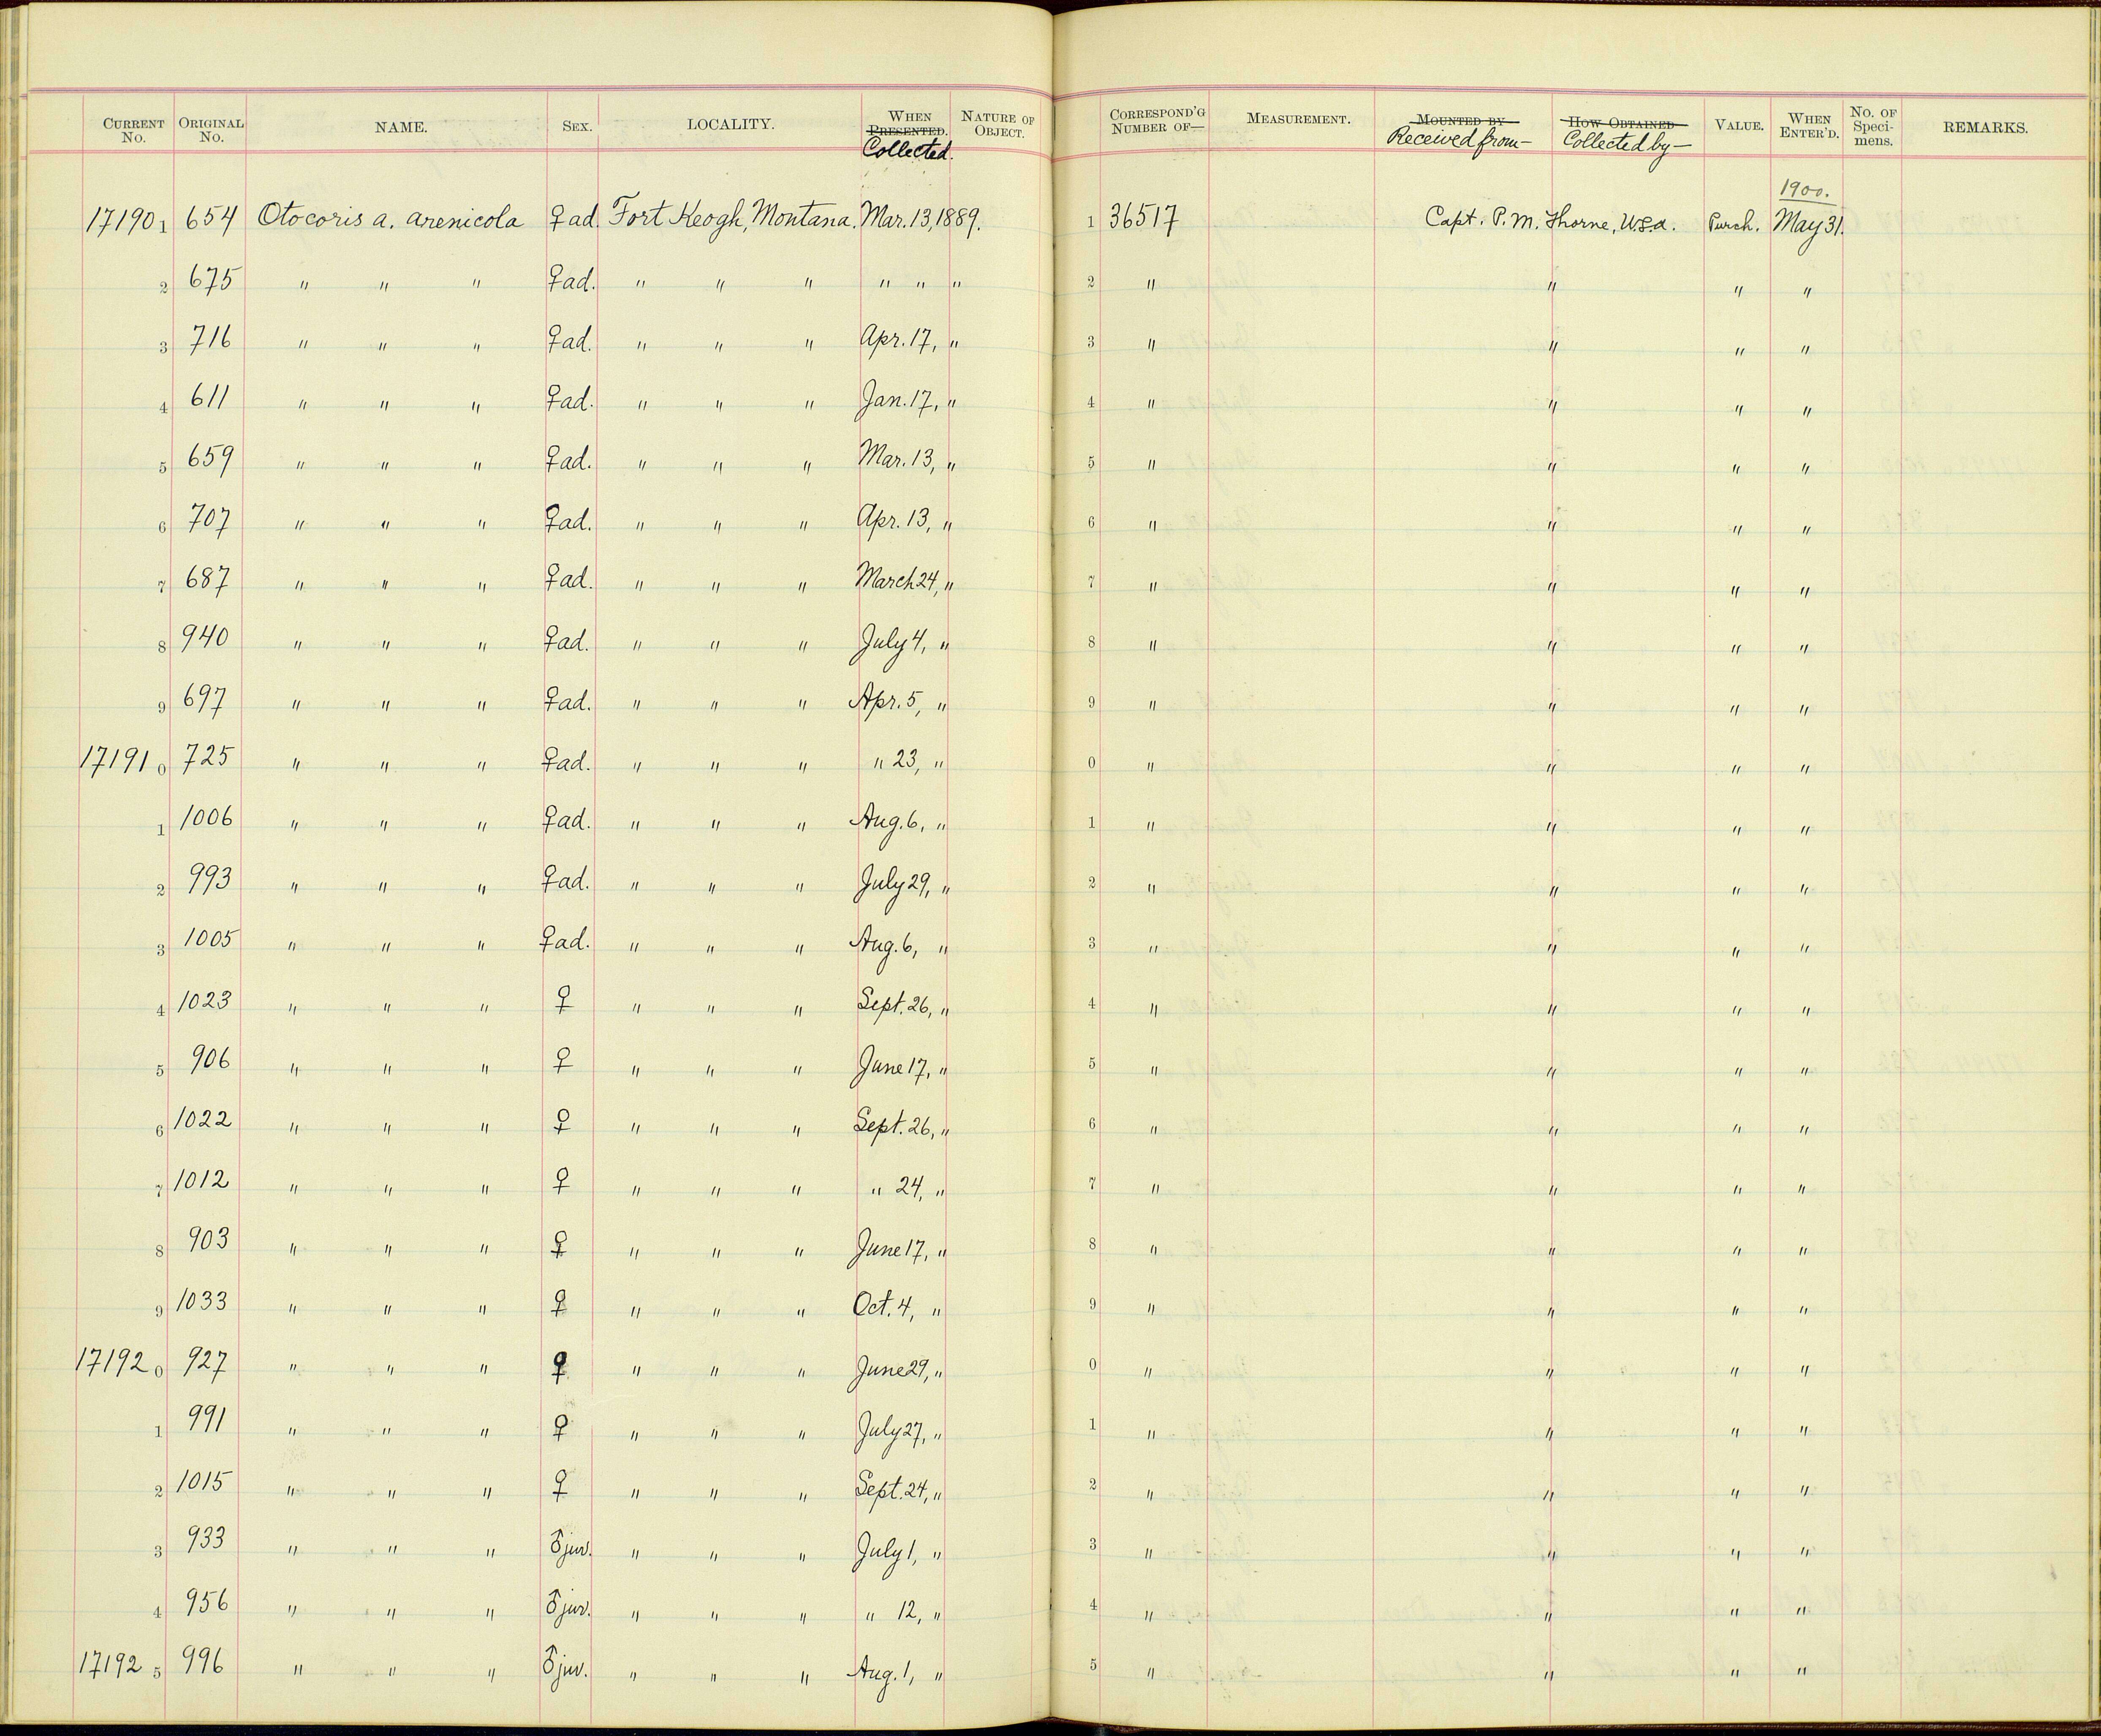 CURRENT No. ORIGINAL No. NAME. SEX. LOCALITY. WHEN PRESENTED. Collected. NATURE OF OBJECT. CORRESPOND'G NUMBER OF— MEASUREMENT. MOUNTED BY Received from— HOW OBTAINED Collected by— VALUE. WHEN ENTER'D. No. OF Speci-mens. REMARKS.
1900.
17190 1 654 Otocoris a. arenicola ♀ ad. Fort Keogh, Montana. Mar. 13, 1889. 1 36517 Capt. P. M. Thorne, U.S.A. Purch. May 31.
2 675 " " " ♀ ad. " " " " " " 2 " " " "
3 716 " " " ♀ ad. " " " Apr. 17, " 3 " " " "
4 611 " " " ♀ ad. " " " Jan. 17, " 4 " " " "
5 659 " " " ♀ ad. " " " Mar. 13, " 5 " " " "
6 707 " " " ♀ ad. " " " Apr. 13, " 6 " " " "
7 687 " " " ♀ ad. " " " March 24, " 7 " " " "
8 940 " " " ♀ ad. " " " July 4, " 8 " " " "
9 697 " " " ♀ ad. " " " Apr. 5, " 9 " " " "
17191 0 725 " " " ♀ ad. " " " " 23, " 0 " " " "
1 1006 " " " ♀ ad. " " " Aug. 6, " 1 " " " "
2 993 " " " ♀ ad. " " " July 29, " 2 " " " "
3 1005 " " " ♀ ad. " " " Aug. 6, " 3 " " " "
4 1023 " " " ♀ " " " Sept. 26, " 4 " " " "
5 906 " " " ♀ " " " June 17, " 5 " " " "
6 1022 " " " ♀ " " " Sept. 26, " 6 " " " "
7 1012 " " " ♀ " " " " 24, " 7 " " " "
8 903 " " " ♀ " " " June 17, " 8 " " " "
9 1033 " " " ♀ " " " Oct. 4, " 9 " " " "
17192 0 927 " " " ♀ " " " June 29, " 0 " " " "
1 991 " " " ♀ " " " July 27, " 1 " " " "
2 1015 " " " ♀ " " " Sept. 24, " 2 " " " "
3 933 " " " ♂ juv. " " " July 1, " 3 " " " "
4 956 " " " ♂ juv. " " " " 12, " 4 " " " "
17192 5 996 " " " ♂ juv. " " " Aug. 1, " 5 " " " "